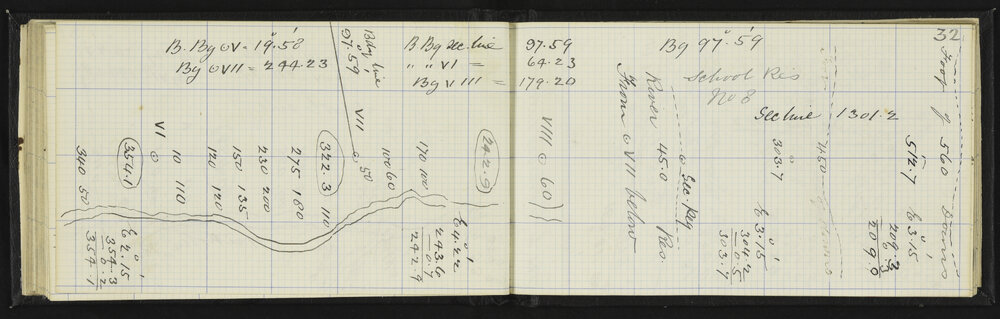 B. Bg ⊙ V = 19°.58
Bg ⊙ VII = 244.23
Bdy line
97°.59
B Bg Sec line 97.59
" " VI = 64.23
Bg VIII = 179.20
Bg 97°.59
School Res
No 8
32
Sec line 1301.2
VI ⊙
354.1
340 50
10 110
120 120
150 135
230 200
275 180
322.3 110
VII ⊙ 50
100 60
170 100
242.9
VIII ⊙ 60
∠ 2°.15
354.3
0.2
354.1
∠ 4°.22
243.6
0.7
242.9
From ⊙ VII below
River 45.0 Res
⊙ Sec. Peg
303.7
∠ 3°.15
304.2
0.5
303.7
450
512.7 ∠ 3°.15
209.3
0.3
209.0
Foot of 560 Downs